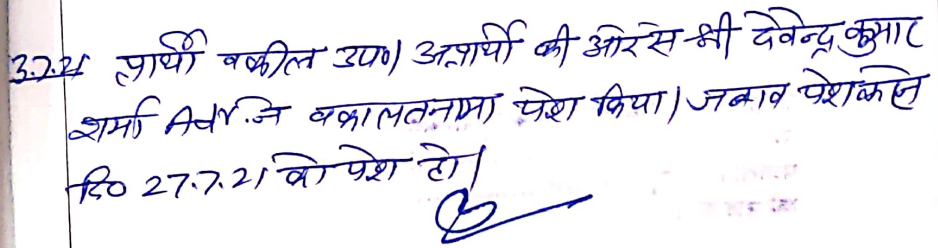 3.7.21 प्रार्थी वकील उप०। अप्रार्थी की ओर से श्री देवेन्द्र कुमार
शर्मा Adv. ने वकालतनामा पेश किया। जवाब पेश करने
दि० 27.7.21 को पेश हो।